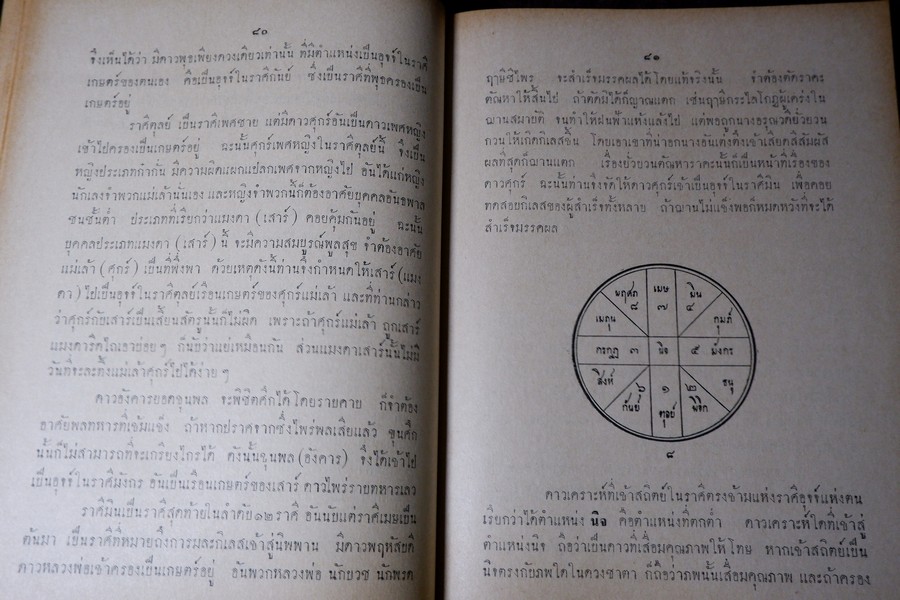 ๘๐
จึงเห็นได้ว่า มีดาวพุธเพียงดวงเดียวเท่านั้น ที่มีตำแหน่งเป็นอุจจ์ในราศี
เกษตร์ของตนเอง คือเป็นอุจจ์ในราศีกันย์ ซึ่งเป็นราศีที่พุธครองเป็น
เกษตร์อยู่
ราศีตุลย์ เป็นราศีเพศชาย แต่มีดาวศุกร์อันเป็นดาวเพศหญิง
เข้าไปครองเป็นเกษตร์อยู่ ฉะนั้นศุกร์เพศหญิงในราศีตุลย์นี้ จึงเป็น
หญิงประเภทก๋ากั่น มีความผิดแผกแปลกเพศจากหญิงไป อันได้แก่หญิง
นักเลงจำพวกแม่เล้านั่นเอง และหญิงจำพวกนี้ก็ต้องอาศัยบุคคลอันธพาล
ชนชั้นต่ำ ประเภทที่เรียกว่าแมงดา (เสาร์) คอยคุ้มกันอยู่ ฉะนั้น
บุคคลประเภทแมงดา (เสาร์) นี้ จะมีความสมบูรณ์พูลสุข จำต้องอาศัย
แม่เล้า (ศุกร์) เป็นที่พึ่งพา ด้วยเหตุดังนี้ท่านจึงกำหนดให้เสาร์ (แมง
ดา) ไปเป็นอุจจ์ในราศีตุลย์เรือนเกษตร์ของศุกร์แม่เล้า และที่ท่านกล่าว
ว่าศุกร์กับเสาร์เป็นเสี้ยนศัตรูนั้นก็ไม่ผิด เพราะถ้าศุกร์แม่เล้า ถูกเสาร์
แมงดารีดไถเอาบ่อยๆ ก็นับว่าแย่เหมือนกัน ส่วนแมงดาเสาร์นั้นไม่มี
วันที่จะละทิ้งแม่เล้าศุกร์ไปได้ง่ายๆ
ดาวอังคารยอดขุนพล จะพิชิตศึกได้โดยรายดาย ก็จำต้อง
อาศัยพลทหารที่เข้มแข็ง ถ้าหากปราศจากซึ่งไพร่พลเสียแล้ว ขุนศึก
นั้นก็ไม่สามารถที่จะเกรียงไกรได้ ดังนั้นขุนพล (อังคาร) จึงได้เข้าไป
เป็นอุจจ์ในราศีมังกร อันเป็นเรือนเกษตร์ของเสาร์ ดาวไพร่รายทหารเลว
ราศีมีนเป็นราศีสุดท้ายในลำดับ๑๒ราศี อันนับแต่ราศีเมษเป็น
ต้นมา เป็นราศีที่หมายถึงการมละกิเลสเข้าสู่นิพพาน มีดาวพฤหัสบดี
ดาวหลวงพ่อเข้าครองเป็นเกษตร์อยู่ อันพวกหลวงพ่อ นักบวช นักพรต
๘๑
ฤาษีชีไพร จะสำเร็จมรรคผลได้โดยแท้จริงนั้น จำต้องตัดราคะ
ตัณหาให้สิ้นไป ถ้าตัดมิได้ก็ญาณแตก เช่นฤาษีกระไลโกฏผู้เคร่งใน
ฌานสมาบัติ จนทำให้ฝนฟ้าแห้งแล้งไป แต่พอถูกนางอรุณวดียั่วยวน
กวนให้เกิดกิเลสขึ้น โดยเอาเขาที่น่าอกนางอันเต่งตึงเข้าเสียดสีสัมผัส
ผลที่สุดก็ฌานแตก เรื่องยั่วยวนตัณหาราคะนั้นก็เป็นหน้าที่เรื่องของ
ดาวศุกร์ ฉะนั้นท่านจึงจัดให้ดาวศุกร์เข้าเป็นอุจจ์ในราศีมีน เพื่อคอย
ทดสอบกิเลสของผู้สำเร็จทั้งหลาย ถ้าฌานไม่แข็งพอก็หมดหวังที่จะได้
สำเร็จมรรคผล
พฤศภ ๘ เมษ ๗ มีน ๔
เมถุน กุมภ์
กรกฏ ๓ นิจ ๕ มังกร
สิงห์ ๖ ๑ ๒ ธนู
กันย์ ตุลย์ พิจิก
๘
ดาวเคราะห์ที่เข้าสถิตย์ในราศีตรงข้ามแห่งราศีอุจจ์แห่งตน
เรียกว่าได้ตำแหน่ง นิจ คือตำแหน่งที่ตกต่ำ ดาวเคราะห์ใดที่เข้าสู่
ตำแหน่งนิจ ถือว่าเป็นดาวที่เสื่อมคุณภาพให้โทษ หากเข้าสถิตย์เป็น
นิจตรงกับภพใดในดวงชาตา ก็ถือว่าภพนั้นเสื่อมคุณภาพ และถ้าครอง